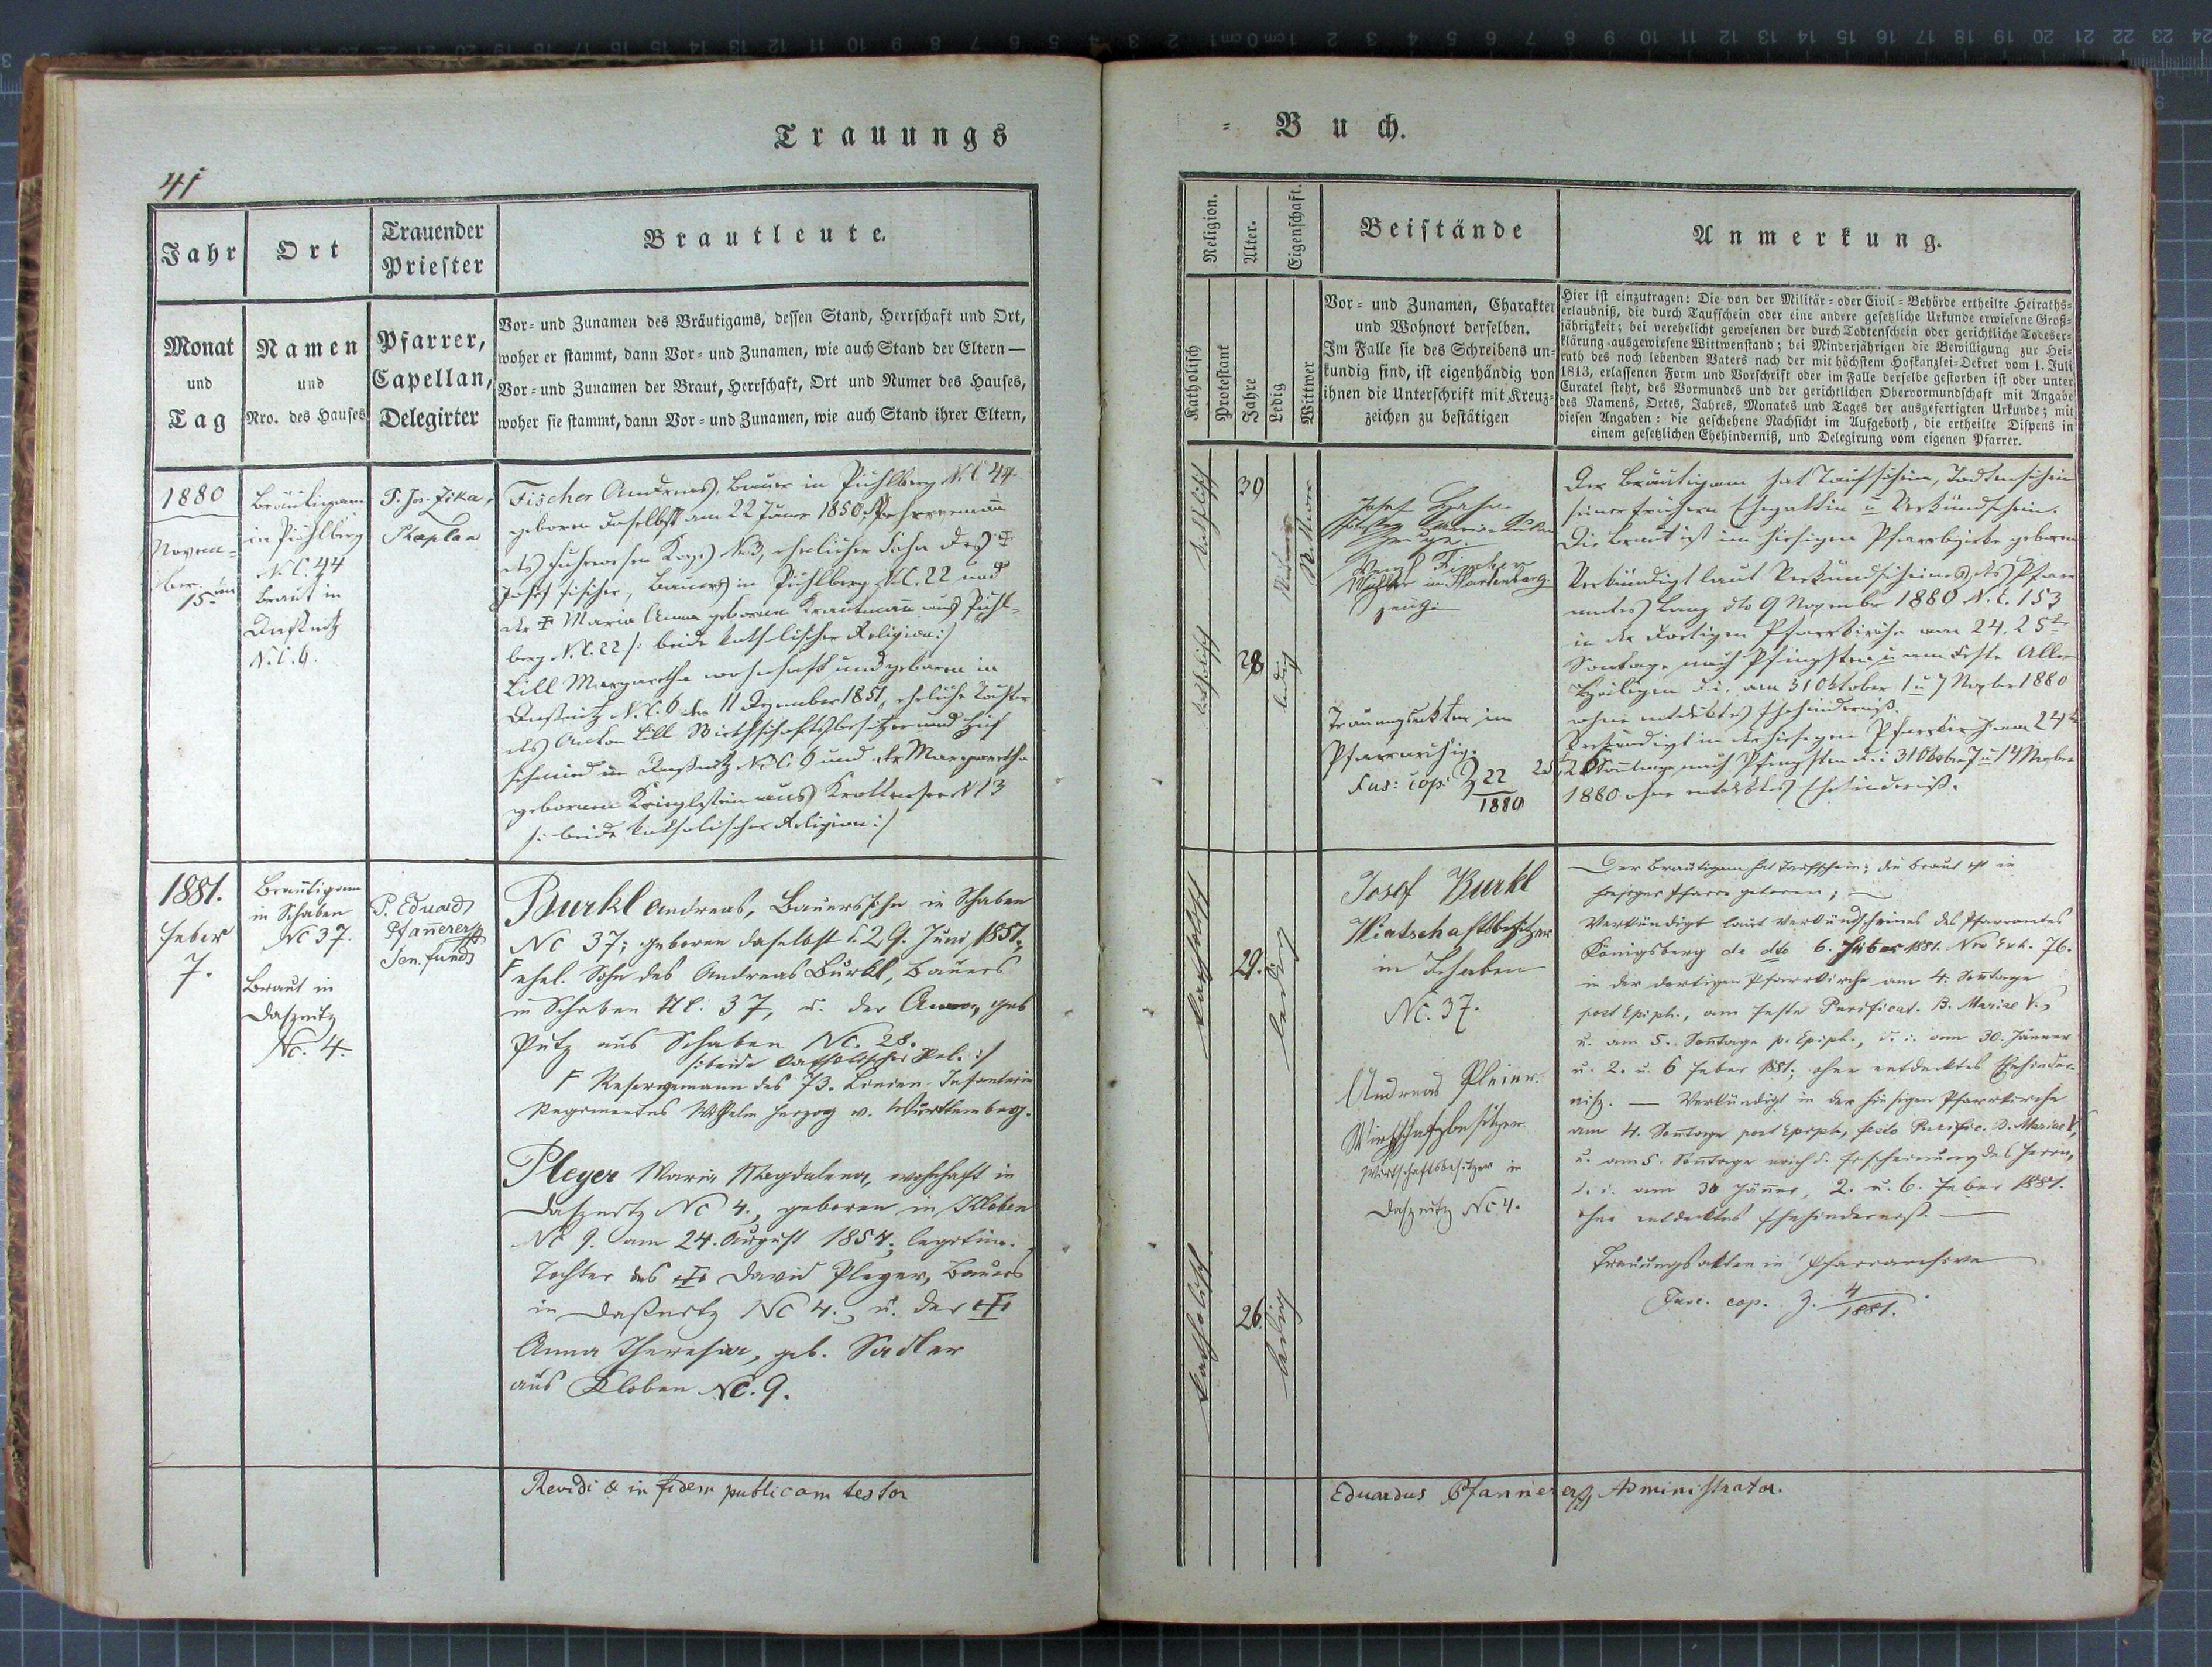 Trauungs
= Buch.
41
Jahr
Ort
Trauender
Priester
Brautleute.
Monat
und
Tag
Namen
und
Nro. des Hauses
Pfarrer,
Capellan,
Delegirter
Vor= und Zunamen des Bräutigams, dessen Stand, Herrschaft und Ort,
woher er stammt, dann Vor= und Zunamen, wie auch Stand der Eltern —
Vor= und Zunamen der Braut, Herrschaft, Ort und Numer des Hauses,
woher sie stammt, dann Vor= und Zunamen, wie auch Stand ihrer Eltern,
1880
Novem=
ber
15.
Bräutigam
in Pichlberg
N.C. 44
Braut in
Dassnitz
N.C. 6.
P. Jos. Zika,
Kaplan
Fischer Andreas, Bauer in Pichlberg N.C 44.
geboren daselbst am 22 Jäner 1850
N 3, ehelicher Sohn des
Josef Fischer, Bauers in Pichlberg N.C. 22 und
der Maria Anna geborene Krautmann aus Pichl=
berg N.C. 22 /: beide katholischer Religion :/
Lill Margaretha wohnhaft und geboren in
Dassnitz N.C. 6 den 11 Dezember 1851, eheliche Tochter
des Anton Lill Wirthschaftsbesitzer und Huf
schmied in Dassnitz N.C. 6 und der Margaretha
geborenen aus Krottensee N 13
/: beide katholischer Religion :/
1881.
Feber
7.
Bräutigam
in Schaben
NC 37.
Braut in
Dassnitz
Nc. 4.
P. Eduard
Pfannerer
Burkl Andreas, Bauerssohn in Schaben
NC 37; geboren daselbst d. 29. Juni 1851.
ehel. Sohn des Andreas Burkl, Bauers
in Schaben NC. 37, u. der Anna, geb
Putz aus Schaben NC. 28.
/: beide katholischer Rel. :/
Reservemann des 73. Linien-Infanterie
Regimentes Wilhelm Herzog v. Württemberg.
Pleyer Maria Magdalena, wohnhaft in
Dassnitz NC 4., geboren in Kloben
NC 9. am 24. August 1854; legitim.
Tochter des David Pleyer, Bauers
in Dassnitz NC 4., u. der
Anna Theresia, geb. Sadler
aus Kloben NC. 9.
Revidi & in fidem publicam testor
Religion.
Alter.
Eigenschaft.
Beistände
Anmerkung.
Katholisch
Protestant
Jahre
Ledig
Wittwer
Vor= und Zunamen, Charakter
und Wohnort derselben.
Im Falle sie des Schreibens un=
kundig sind, ist eigenhändig von
ihnen die Unterschrift mit Kreuz=
zeichen zu bestätigen
Hier ist einzutragen: Die von der Militär= oder Civil=Behörde ertheilte Heiraths=
erlaubniß, die durch Taufschein oder eine andere gesetzliche Urkunde erwiesene Groß=
jährigkeit; bei verehelicht gewesenen der durch Todtenschein oder gerichtliche Todeser=
klärung ausgewiesene Wittwenstand; bei Minderjährigen die Bewilligung zur Hei=
rath des noch lebenden Vaters nach der mit höchstem Hofkanzlei=Dekret vom 1. Juli
1813, erlassenen Form und Vorschrift oder im Falle derselbe gestorben ist oder unter
Curatel steht, des Vormundes und der gerichtlichen Obervormundschaft mit Angabe
des Namens, Ortes, Jahres, Monates und Tages der ausgefertigten Urkunde; mit
diesen Angaben: die geschehene Nachsicht im Aufgeboth, die ertheilte Dispens in
einem gesetzlichen Ehehinderniß, und Delegirung vom eigenen Pfarrer.
katholisch
30
Wittwer
katholisch
28
ledig
Josef Hahn
Zeuge.
Fischer
in Wartenberg
Zeuge
Trauungsakten im
Pfarrarchiv.
Fas: cop: Z 22
1880
Der Bräutigam hat Taufschein, Todtenschein
seiner frühern Ehegattin u Verkündschein.
Die Braut ist im hiesigen Pfarrbezirke geboren
Verkündigt laut Verkündscheines des Pfarr
amtes Lanz dto 9 November 1880 N.E. 153
in der dortigen Pfarrkirche am 24, 25
Sontage nach Pfingsten u am Feste Aller
Heiligen d.i. am 31 Oktober 1 u 7 Novbr 1880
ohne entdecktes Ehehinderniß.
Verkündigt in der hiesigen Pfarrkirche am 24
25, 26 Sontage nach Pfingsten d.i. 31 Oktober 7 u 14 Novber
1880 ohne entdecktes Ehehinderniß.
katholisch
29.
ledig
katholisch
26.
ledig
Josef Burkl
Wirtschaftsbesitzer
in Schaben
NC. 37.
Andreas Pleier.
Wirthschaftsbesitzer
Wirtschaftsbesitzer in
Dassnitz NC 4.
Der Bräutigam hat Taufschein; die Braut ist in
hiesiger Pfarre geboren;
Verkündigt laut Verkündscheines des Pfarramtes
Königsberg de dto 6. Feber 1881. Nro Exh. 76.
in der dortigen Pfarrkirche am 4. Sontage
post Epiph., am Feste Purificat. B. Mariae V.,
u. am 5. Sontage p. Epiph., d. i. am 30. Jänner
u. 2. u. 6 Feber 1881; ohne entdecktes Ehehinder
niß. — Verkündigt in der hiesigen Pfarrkirche
am 4. Sontage post Epiph, festo Purific. B. Mariae V,
u. am 5. Sontage nach d. Erscheinung des Herrn,
d. i. am 30 Jänner, 2. u. 6. Feber 1881.
ohne entdecktes Ehehinderniß. —
Trauungsakten in Pfarrarchive
Fasc. cop. Z. 4
1881.
Eduardus Pfannerer, Administrator.